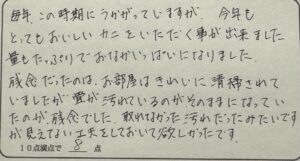 毎年、この時期にうかがっていますが、今年も
とってもおいしいカニをいただく事が出来ました
量もたっぷりでおなかがいっぱいになりました。
残念だったのは、お部屋はきれいに清掃されて
いましたが畳が汚れているのがそのままになってい
たのが、残念でした。取れなかった汚れだったみたいですが
見えない工夫をしておいて欲しかったです。
10点満点で 8 点